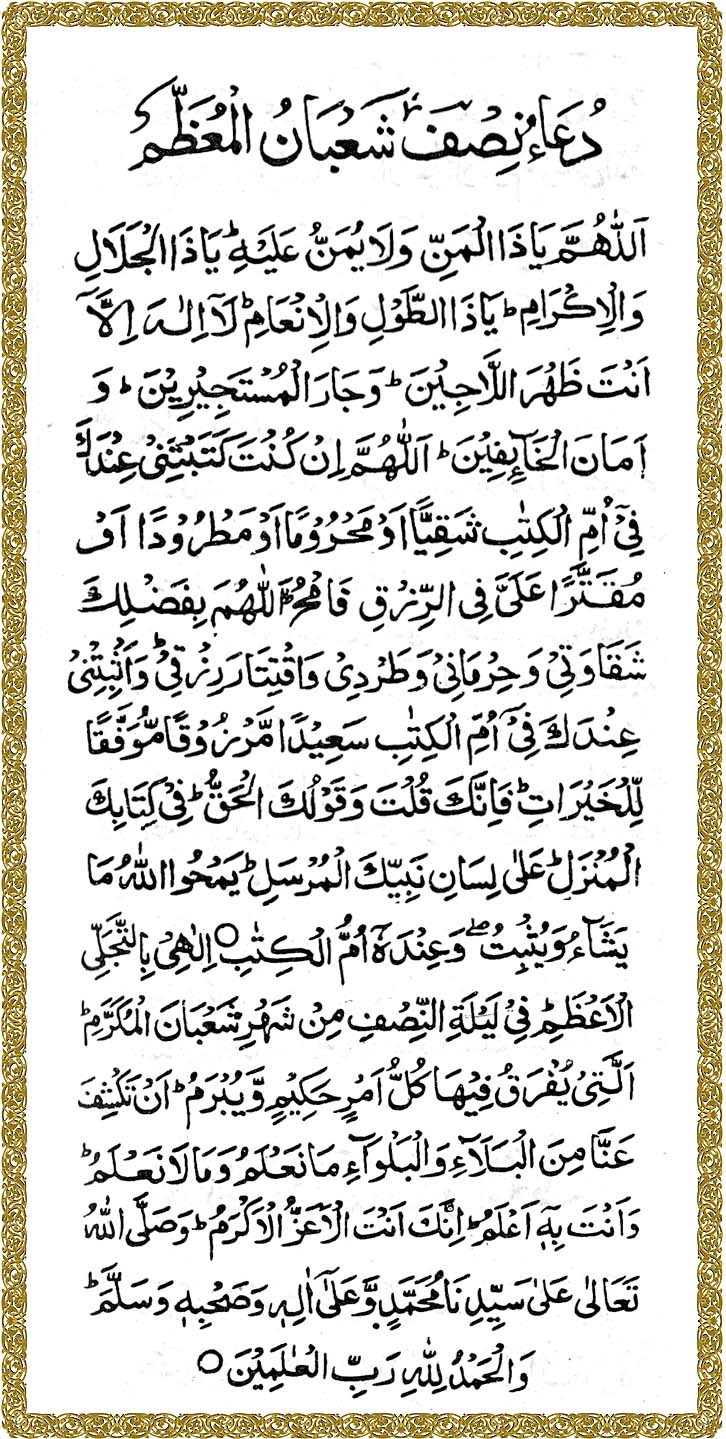 دُعَاءُ نِصْفَ شَعْبَانُ الْمُعَظَّمْ
اَللّٰهُمَّ يَاذَا الْمَنِّ وَلَا يُمَنُّ عَلَيْهِ ؕ يَاذَا الْجَلَالِ
وَالْاِكْرَامِ ؕ يَاذَا الطَّوْلِ وَالْاِنْعَامِ ؕ لَآ اِلٰهَ اِلَّآ
اَنْتَ ظَهْرَ اللَّاجِيْنَ ؕ وَجَارَ الْمُسْتَجِيْرِيْنَ ؕ وَ
اَمَانَ الْخَآئِفِيْنَ ؕ اَللّٰهُمَّ اِنْ كُنْتَ كَتَبْتَنِيْ عِنْدَكَ
فِيْٓ اُمِّ الْكِتٰبِ شَقِيًّا اَوْ مَحْرُوْمًا اَوْ مَطْرُوْدًا اَوْ
مُقَتَّرًا عَلَيَّ فِي الرِّزْقِ فَامْحُ اَللّٰهُمَّ بِفَضْلِكَ
شَقَاوَتِيْ وَحِرْمَانِيْ وَطَرْدِيْ وَاقْتِتَارَ رِزْقِيْ ؕ وَاَثْبِتْنِيْ
عِنْدَكَ فِيْٓ اُمِّ الْكِتٰبِ سَعِيْدًا مَّرْزُوْقًا مُّوَفَّقًا
لِّلْخَيْرَاتِ ؕ فَاِنَّكَ قُلْتَ وَقَوْلُكَ الْحَقُّ ؕ فِيْ كِتَابِكَ
الْمُنْزَلِ ؕ عَلٰى لِسَانِ نَبِيِّكَ الْمُرْسَلِ ؕ يَمْحُوا اللّٰهُ مَا
يَشَآءُ وَيُثْبِتُ ۖ وَعِنْدَهٗٓ اُمُّ الْكِتٰبِ ○ اِلٰهِيْ بِالتَّجَلِّي
الْاَعْظَمِ ؕ فِيْ لَيْلَةِ النِّصْفِ مِنْ شَهْرِ شَعْبَانَ الْمُكَرَّمِ ؕ
الَّتِيْ يُفْرَقُ فِيْهَا كُلُّ اَمْرٍ حَكِيْمٍ وَّيُبْرَمُ ؕ اَنْ تَكْشِفَ
عَنَّا مِنَ الْبَلَآءِ وَالْبَلْوَآءِ مَا نَعْلَمُ وَمَا لَا نَعْلَمُ ؕ
وَاَنْتَ بِهٖٓ اَعْلَمُ ؕ اِنَّكَ اَنْتَ الْاَعَزُّ الْاَكْرَمُ ؕ وَصَلَّى اللّٰهُ
تَعَالٰى عَلٰى سَيِّدِنَا مُحَمَّدٍ وَّعَلٰٓى اٰلِهٖ وَصَحْبِهٖ وَسَلَّمَ ؕ
وَالْحَمْدُ لِلّٰهِ رَبِّ الْعٰلَمِيْنَ ○